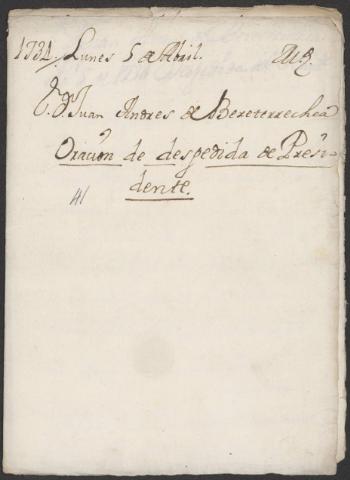 1734 Lunes 5 de Abril.
D. Juan Andres de Bereterrechea
Oración de despedida de Presi-
dente.
41